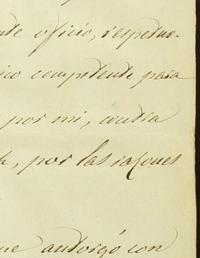 nte oficio, respetue-
ico competente para
por mi, contra
por las razones
ne autorgó con